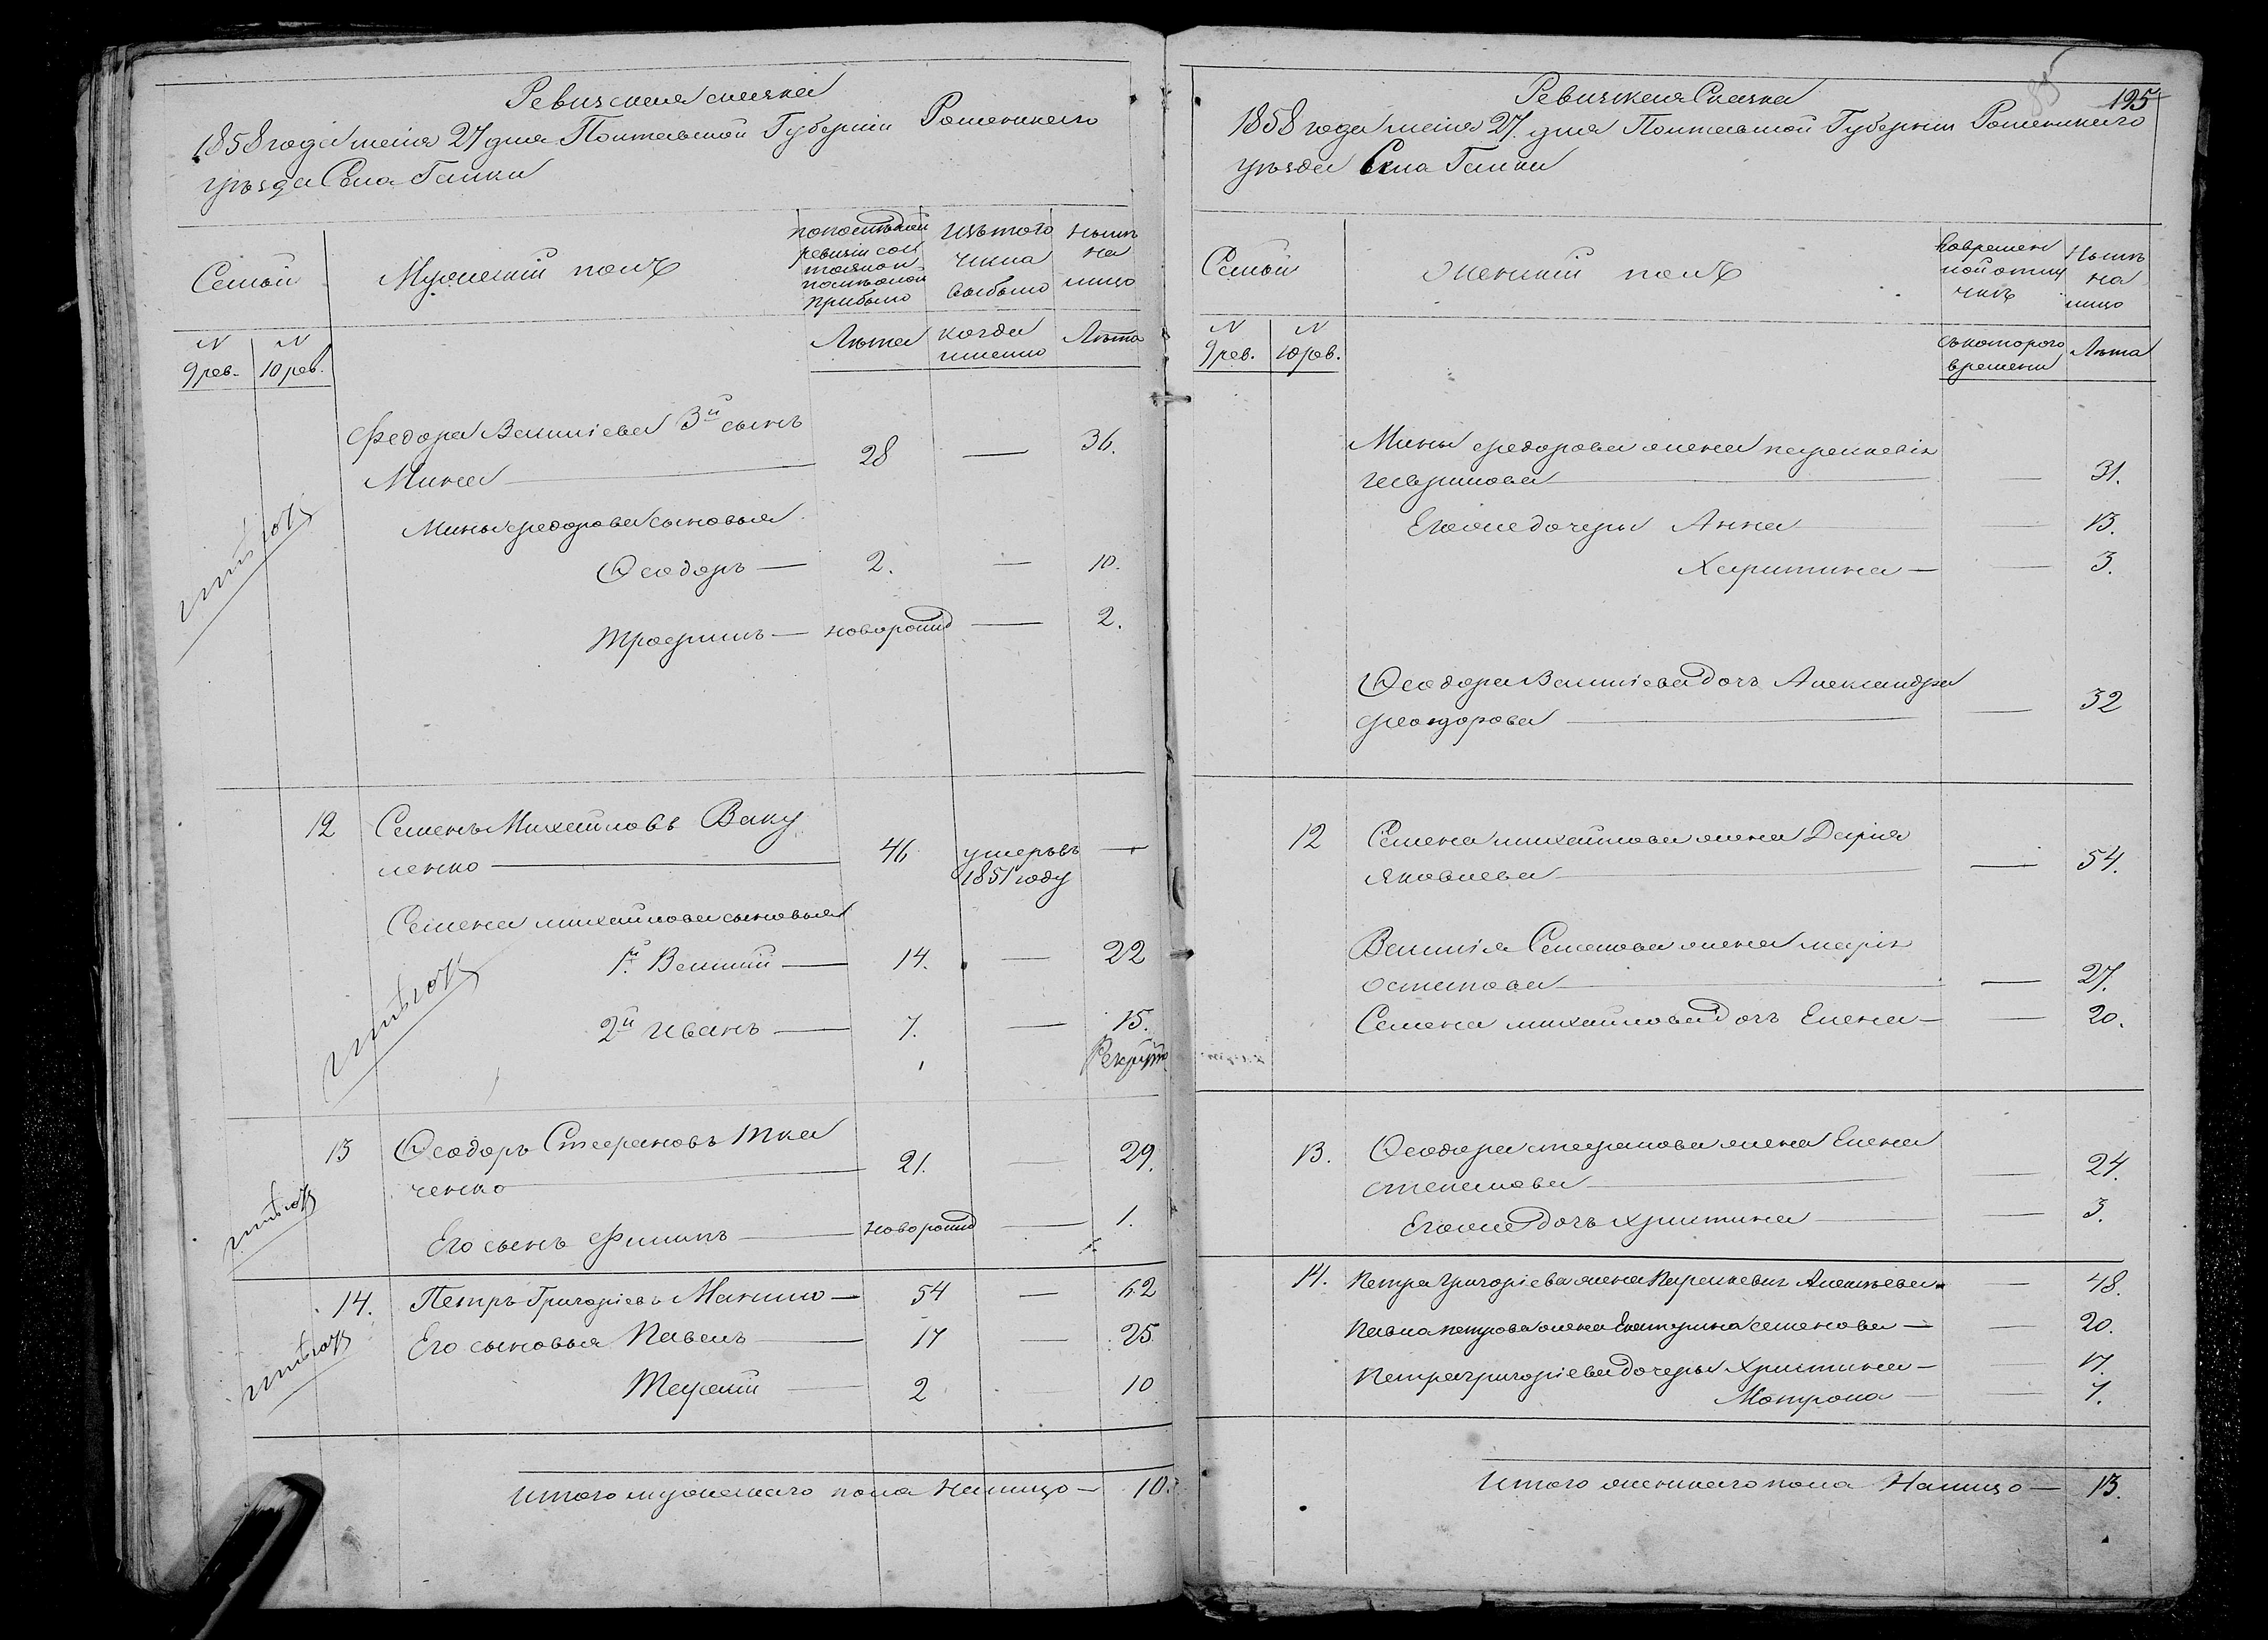 Ревизская сказка
1858 года маія 27 дня Полтавской Губерніи Роменскаго
уѣзда Села Галки
Семьи
Мужескій полъ
по последней
ревизіи сос
тояло и
после оной
прибыло
Изъ того
числа
выбыло
Нынѣ
на
лицо
N
9 рев.
N
10 рев.
Лета
когда
именно
Лѣта
Федора Василіева 3й сынъ
Мина 28 — 36.
Мины Федорова сыновья
Ѳеодоръ — 2. — 10.
Трофимъ — новорожд — 2.
12 Семенъ Михайловъ Ваку
ленко 46 умеръ въ —
1851 году
Семена Михайлова сыновья
1й Василій — 14. — 22
2й Иванъ — 7. — 15.
Рекрутъ
13 Ѳеодоръ Стефановъ Тка
ченко 21. — 29.
Его сынъ Филипъ — новорожд — 1.
14. Петръ Григоріевъ Манило — 54 — 62
Его сыновья Павелъ — 17 — 25
Тарасій — 2 10
Итого мужескаго пола налицо — 10.
195
Ревизская Сказка
1858 года маія 27. дня Полтавской Губерніи Роменскаго
уѣзда Села Галки
Семьи
Женскій полъ
Во времен
ной отлу
чкѣ
Нынѣ
на
лицо
N
9 рев.
N
10 рев.
Съ котораго
времени
Лѣта
Мины Федорова жена Параскевія
Гаврилова — 31.
Его же дочеры Анна — 13.
Харитина — — 3.
Ѳеодора Василіева дочь Александра
Феодорова — 32
12 Семена Михайлова жена Дарія
Яковлева — 54.
Василія Семенова жена Марія
Остапова — 27.
Семена Михайлова дочь Елена — — 20.
13. Ѳеодора Стефанова жена Елена
Степанова — 24.
Его же дочь Христина — 3.
14. Петра Григоріева жена Параскевія Алексѣева — 48.
Павла Петрова жена Екатерина Семенова — — 20.
Петра Григоріева дочеры Христина — 17.
Матрона — 7.
Итого женскаго пола Налицо — 13.